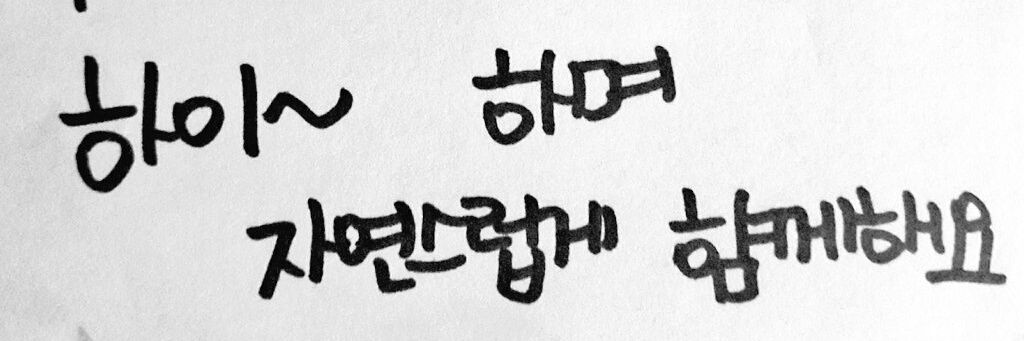 하이~ 하며
자연스럽게 함께해요